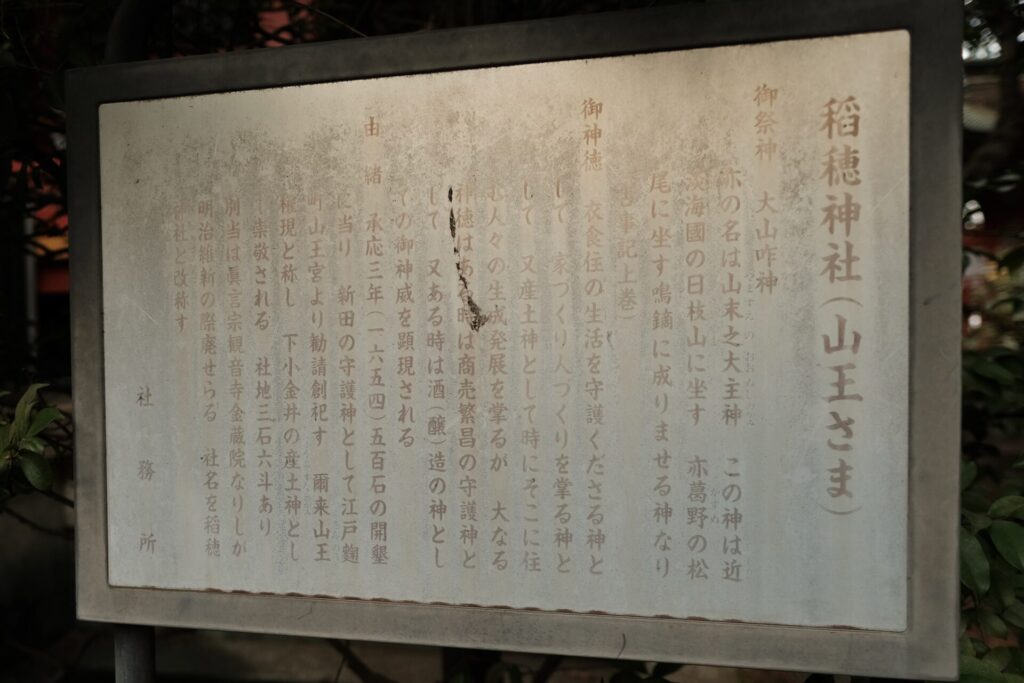 稲穂神社(山王さま)
御祭神 大山咋神
亦の名は山末之大主神 この神は近
やますえ の おおぬしのかみ
淡海國の日枝山に坐す 亦葛野の松
尾に坐す鳴鏑に成りませる神なり
古事記上巻)
御神徳 衣食住の生活を守護くださる神と
して 家づくり人づくりを掌る神と
して 又産土神として時にそこに住
む人々の生成発展を掌るが 大なる
神徳はある時は商売繁昌の守護神と
して 又ある時は酒(醸)造の神とし
ての御神威を顕現される
由緒 承応三年(一六五四)五百石の開墾
に当り 新田の守護神として江戸麹
町山王宮より勧請創祀す 爾来山王
権現と称し 下小金井の産土神とし
て崇敬される 社地三石六斗あり
別当は眞言宗観音寺金蔵院なりしが
明治維新の際廃せらる 社名を稲穂
神社と改称す
社務所